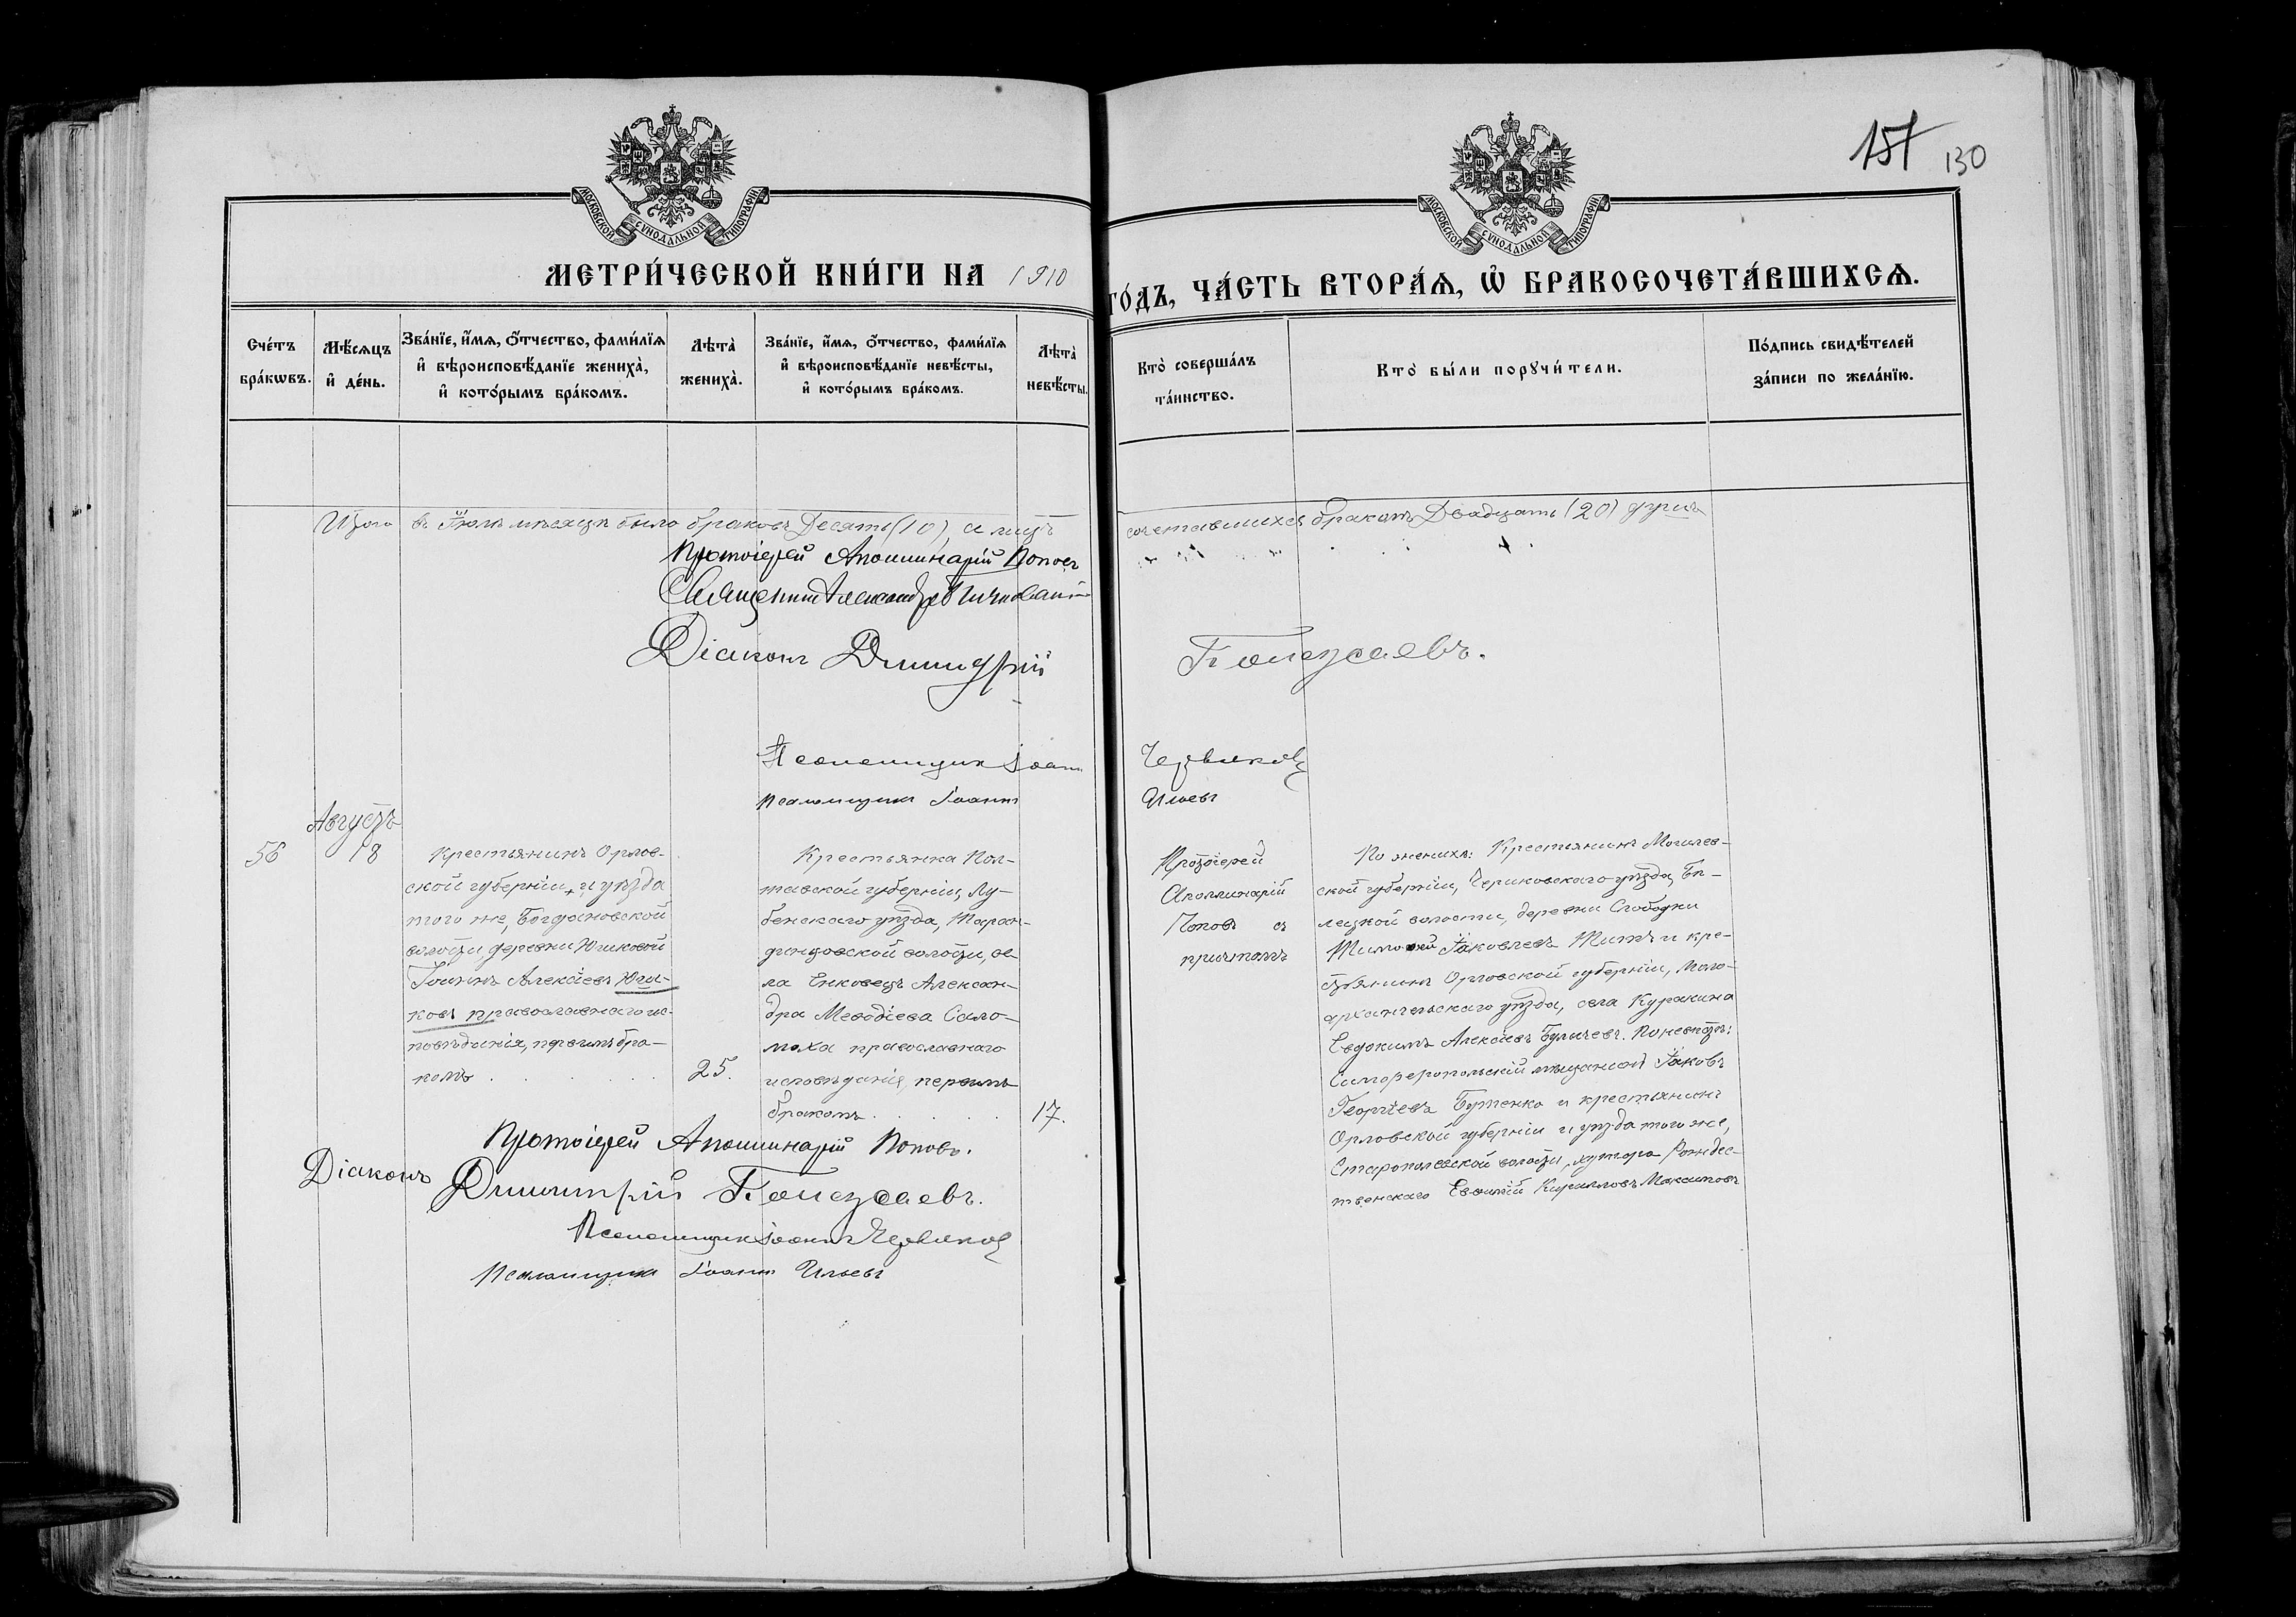 157 130
МОСКОВСКОЙ СѴНОДАЛЬНОЙ ТИПОГРАФІИ
МОСКОВСКОЙ СѴНОДАЛЬНОЙ ТИПОГРАФІИ
МЕТРИ́ЧЕСКОЙ КНИ́ГИ НА 1910
ГО́ДЪ, ЧА́СТЬ ВТОРА́Ѧ, Ѡ҆ БРАКОСОЧЕТА́ВШИХСѦ.
Сче́тъ бра́кѡвъ.
Мѣ́сѧцъ и҆ де́нь.
Зва́нїе, и҆́мѧ, ѻ҆́тчество, фами́лїѧ
и҆ вѣроисповѣ́данїе жениха̀,
и҆ кото́рымъ бра́комъ.
Лѣта̀ жениха̀.
Зва́нїе, и҆́мѧ, ѻ҆́тчество, фами́лїѧ
и҆ вѣроисповѣ́данїе невѣ́сты,
и҆ кото́рымъ бра́комъ.
Лѣта̀ невѣ́сты.
Кто̀ соверша́лъ
та́инство.
Кто̀ бы́ли порꙋчи́тели.
По́дпись свидѣ́телей
за́писи по жела́нїю.
Итого въ Іюлѣ мѣсяцѣ было браковъ Десять (10), а лицъ
сочетавшихся бракомъ Двадцать (20)
Протоіерей Аполлинарій Поповъ
Священникъ Александръ
Діаконъ Димитрій
Псаломщикъ Іоаннъ Червяковъ
Псаломщикъ Іоаннъ Ильевъ
Августъ
56
18
Крестьянинъ Орлов-
ской губерніи, и уѣзда
того же, Богдановской
волости, деревни Юшковой
Іоаннъ Алексѣевъ Юш-
ковъ православнаго ис-
повѣданія, первымъ бра-
комъ
25.
Крестьянка Пол-
тавской губерніи, Лу-
бенскаго уѣзда, Таран-
динцовской волости, се-
ла Енковецъ Алексан-
дра Меѳодіева Сало-
маха православнаго
исповѣданія, первымъ
бракомъ
17.
Протоіерей
Аполлинарій
Поповъ съ
причтомъ
По женихѣ: Крестьянинъ Могилев-
ской губерніи, Чериковскаго уѣзда, Бѣ-
лецкой волости, деревни Слободки
Тимоѳей Іаковлевъ Титъ и кре-
стьянинъ Орловской губерніи, Мало-
архангельскаго уѣзда, села Куракина
Евдокимъ Алексѣевъ Булычевъ. По невѣстѣ:
Симферопольскій мѣщанинъ Іаковъ
Георгіевъ Бутенко и крестьянинъ
Орловской губерніи и уѣзда того же,
волости, хутора Рождес-
твенскаго Евѳимій Кирилловъ Максимовъ
Протоіерей Аполлинарій Поповъ.
Діаконъ Димитрій
Псаломщикъ Іоаннъ Червяковъ
Псаломщикъ Іоаннъ Ильевъ